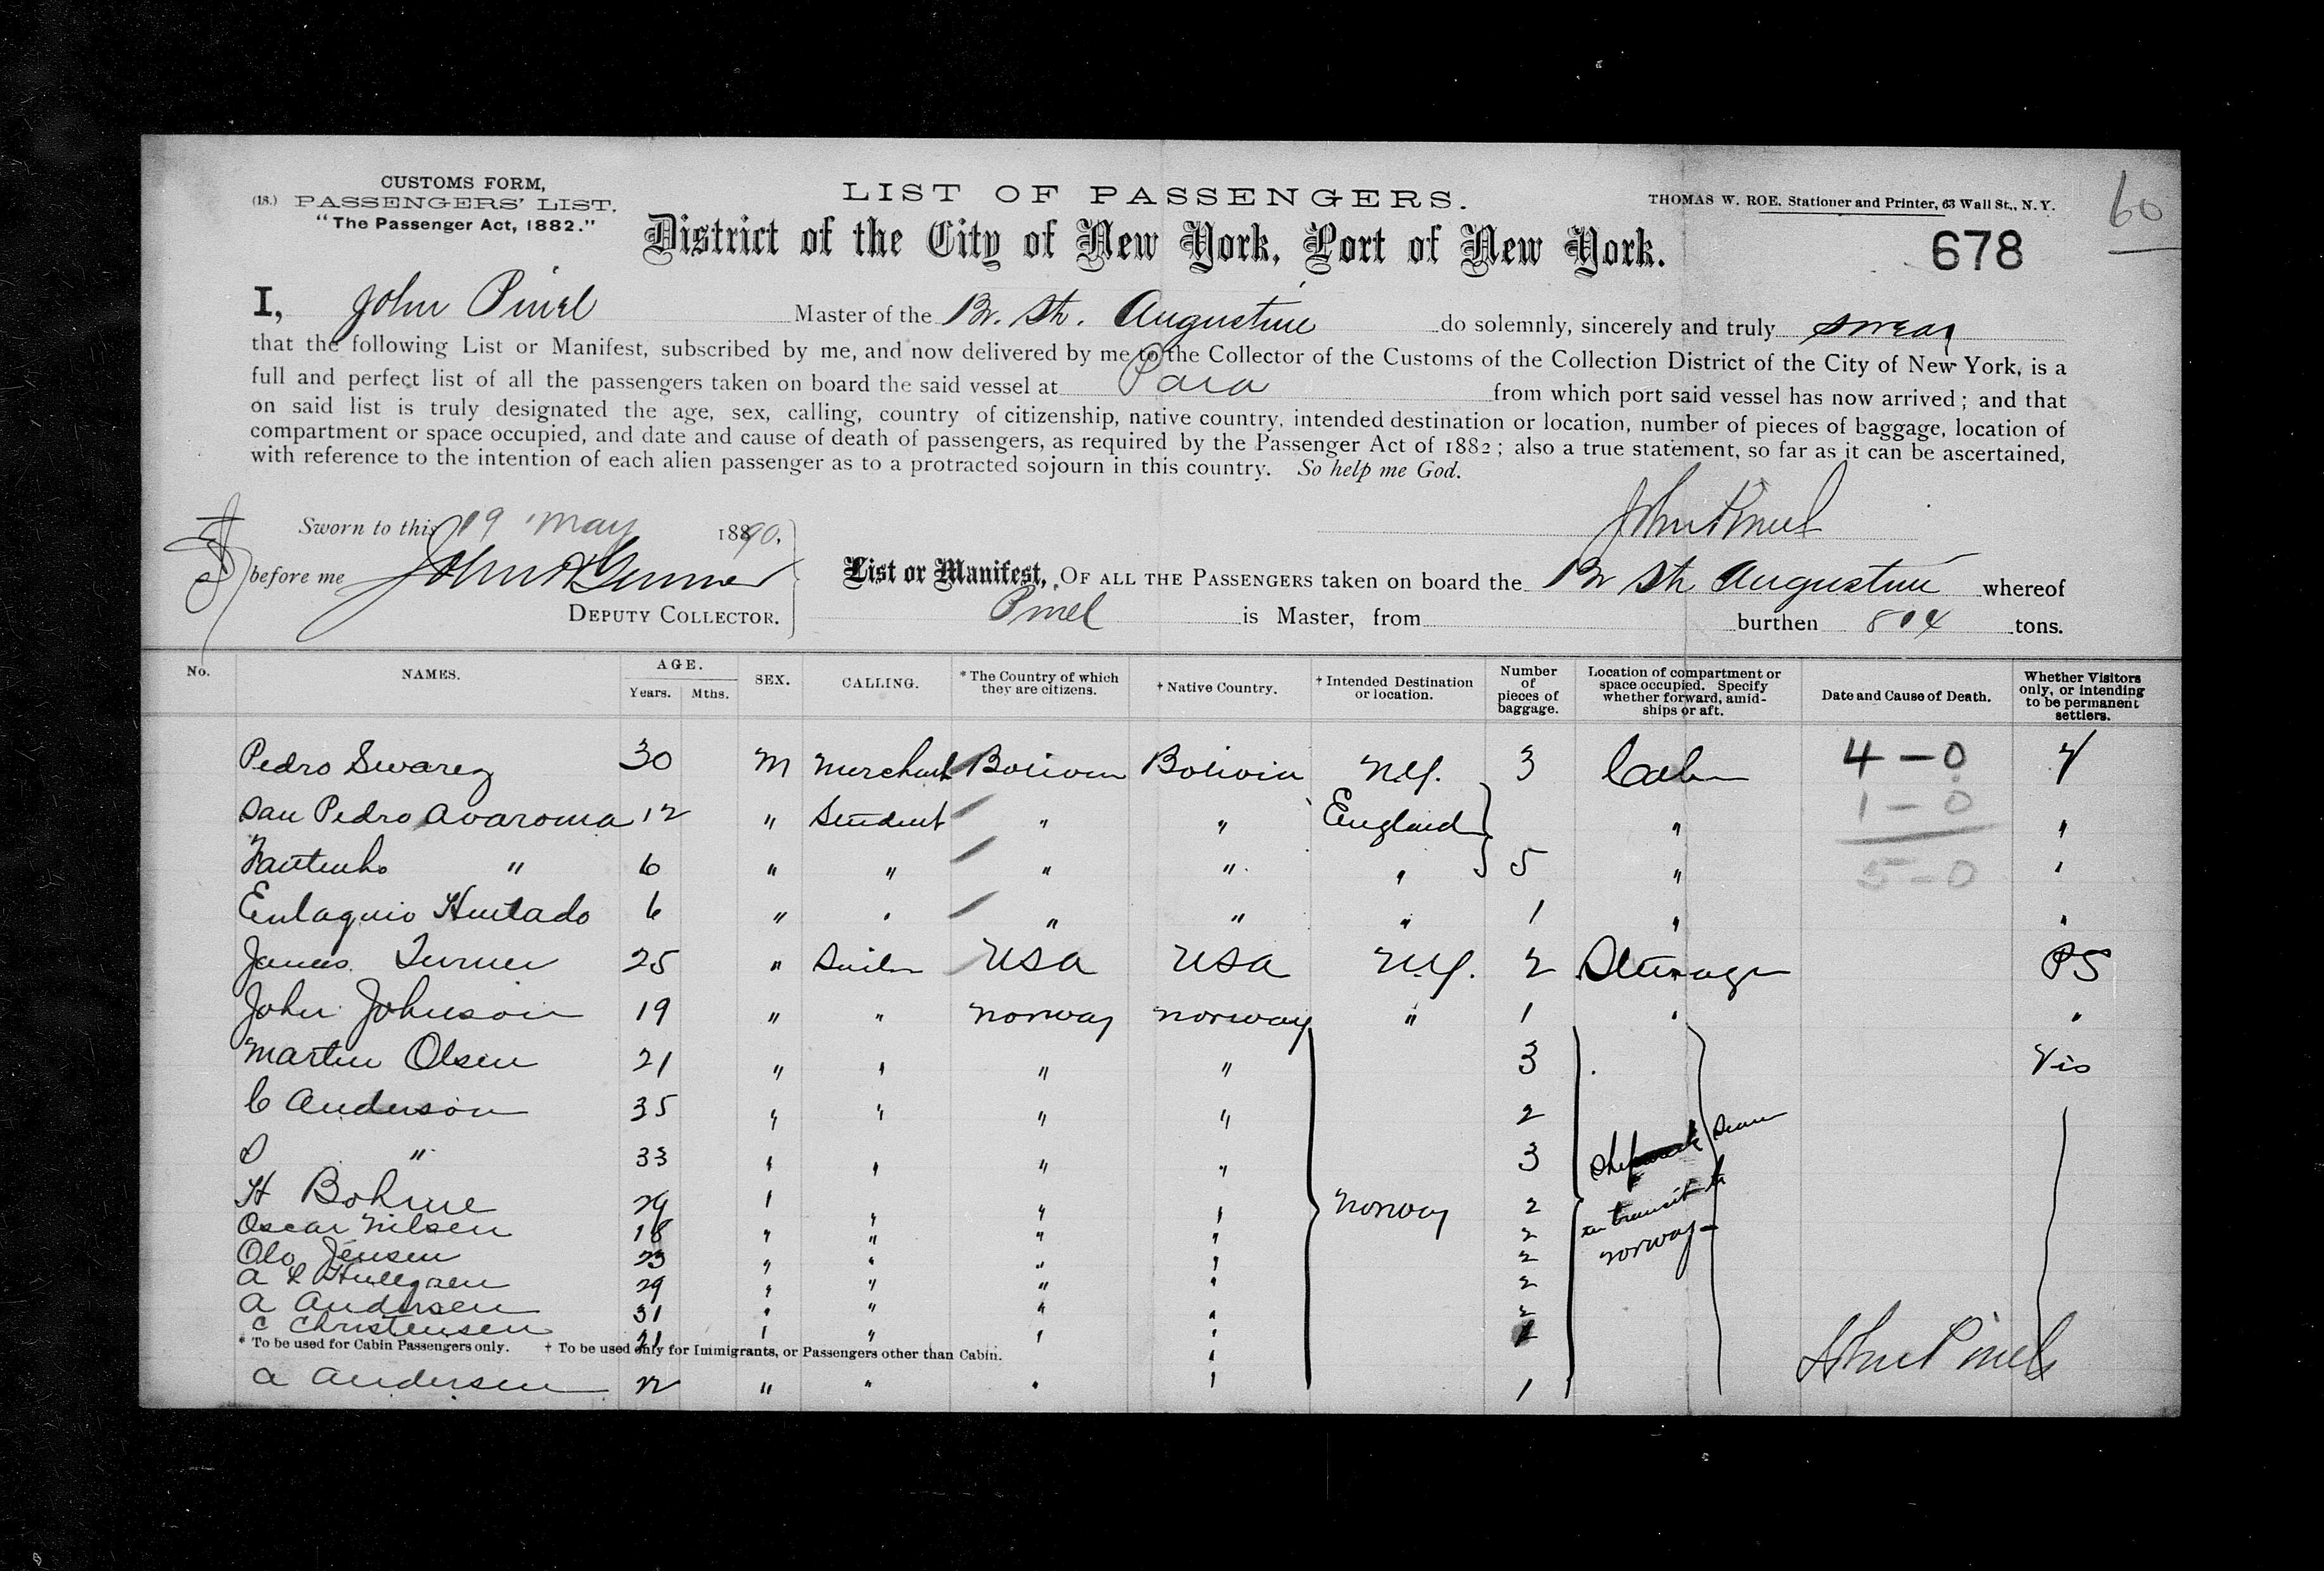 CUSTOMS FORM,
(18.) PASSENGERS' LIST.
"The Passenger Act, 1882."
LIST OF PASSENGERS.
THOMAS W. ROE. Stationer and Printer, 63 Wall St., N.Y.
60
District of the City of New York, Port of New York.
678
I, John Pinel Master of the Br. Str. Augustine do solemnly, sincerely and truly swear
that the following List or Manifest, subscribed by me, and now delivered by me to the Collector of the Customs of the Collection District of the City of New York, is a
full and perfect list of all the passengers taken on board the said vessel at Para from which port said vessel has now arrived; and that
on said list is truly designated the age, sex, calling, country of citizenship, native country, intended destination or location, number of pieces of baggage, location of
compartment or space occupied, and date and cause of death of passengers, as required by the Passenger Act of 1882; also a true statement, so far as it can be ascertained,
with reference to the intention of each alien passenger as to a protracted sojourn in this country. So help me God.
Sworn to this 19 May 1890,
John Pinel
before me John
DEPUTY COLLECTOR.
List or Manifest, OF ALL THE PASSENGERS taken on board the Br Str Augustine whereof
Pinel is Master, from burthen 804 tons.
No. NAMES. AGE. Years. Mths. SEX. CALLING. * The Country of which they are citizens. † Native Country. † Intended Destination or location. Number of pieces of baggage. Location of compartment or space occupied. Specify whether forward, amidships or aft. Date and Cause of Death. Whether Visitors only, or intending to be permanent settlers.
Pedro Swarez 30 M Merchant Bolivia Bolivia N.Y. 3 Cabin 4 - 0 V
San Pedro Avaroma 12 " Student " " England " 1 - 0 "
" 6 " " " " " 5 " 5 - 0 "
Eulaquio Hurtado 6 " " " " " 1 " "
James Turner 25 " Sailor USA USA N.Y. 2 Steerage PS
John Johnson 19 " " Norway Norway " 1 " "
Martin Olsen 21 " " " " 3 Vis
C Anderson 35 " " " " 2
D " 33 " " " " 3
H Bohme 29 " " " " Norway 2 in transit to
Oscar Nilsen 18 " " " " 2 Norway
Olo Jensen 23 " " " " 2
29 " " " " 2
A Andersen 31 " " " " 2
C Christensen 21 " " " " 1
* To be used for Cabin Passengers only. † To be used only for Immigrants, or Passengers other than Cabin.
A Andersen 22 " " " " 1
John Pinel